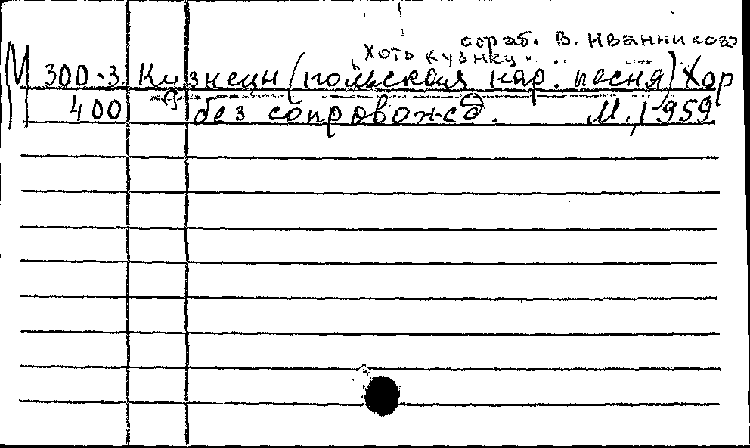 обраб. В. Иванникова
„Хоть кузнец . . .
М 300-3. Кузнецы (польская нар. песня) Хор
400 без сопровожд. М., 1959